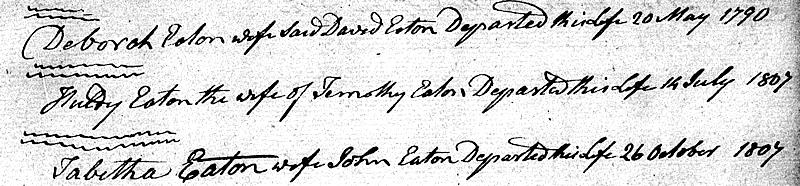 Deborah Eaton wife said David Eaton Departed this Life 20 May 1790
Huldy Eaton the wife of Temothy Eaton Departed this Life 14 July 1807
Tabitha Eaton wife John Eaton Departed this Life 26 October 1807